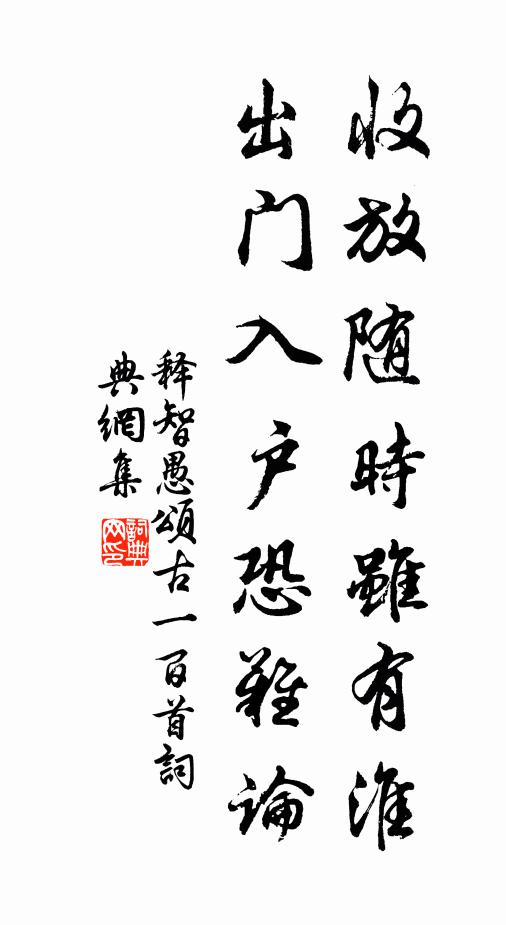 收放随時雖有淮
出门入户恐難論
释智愚頌古一百首詞
典網集
詞典网印